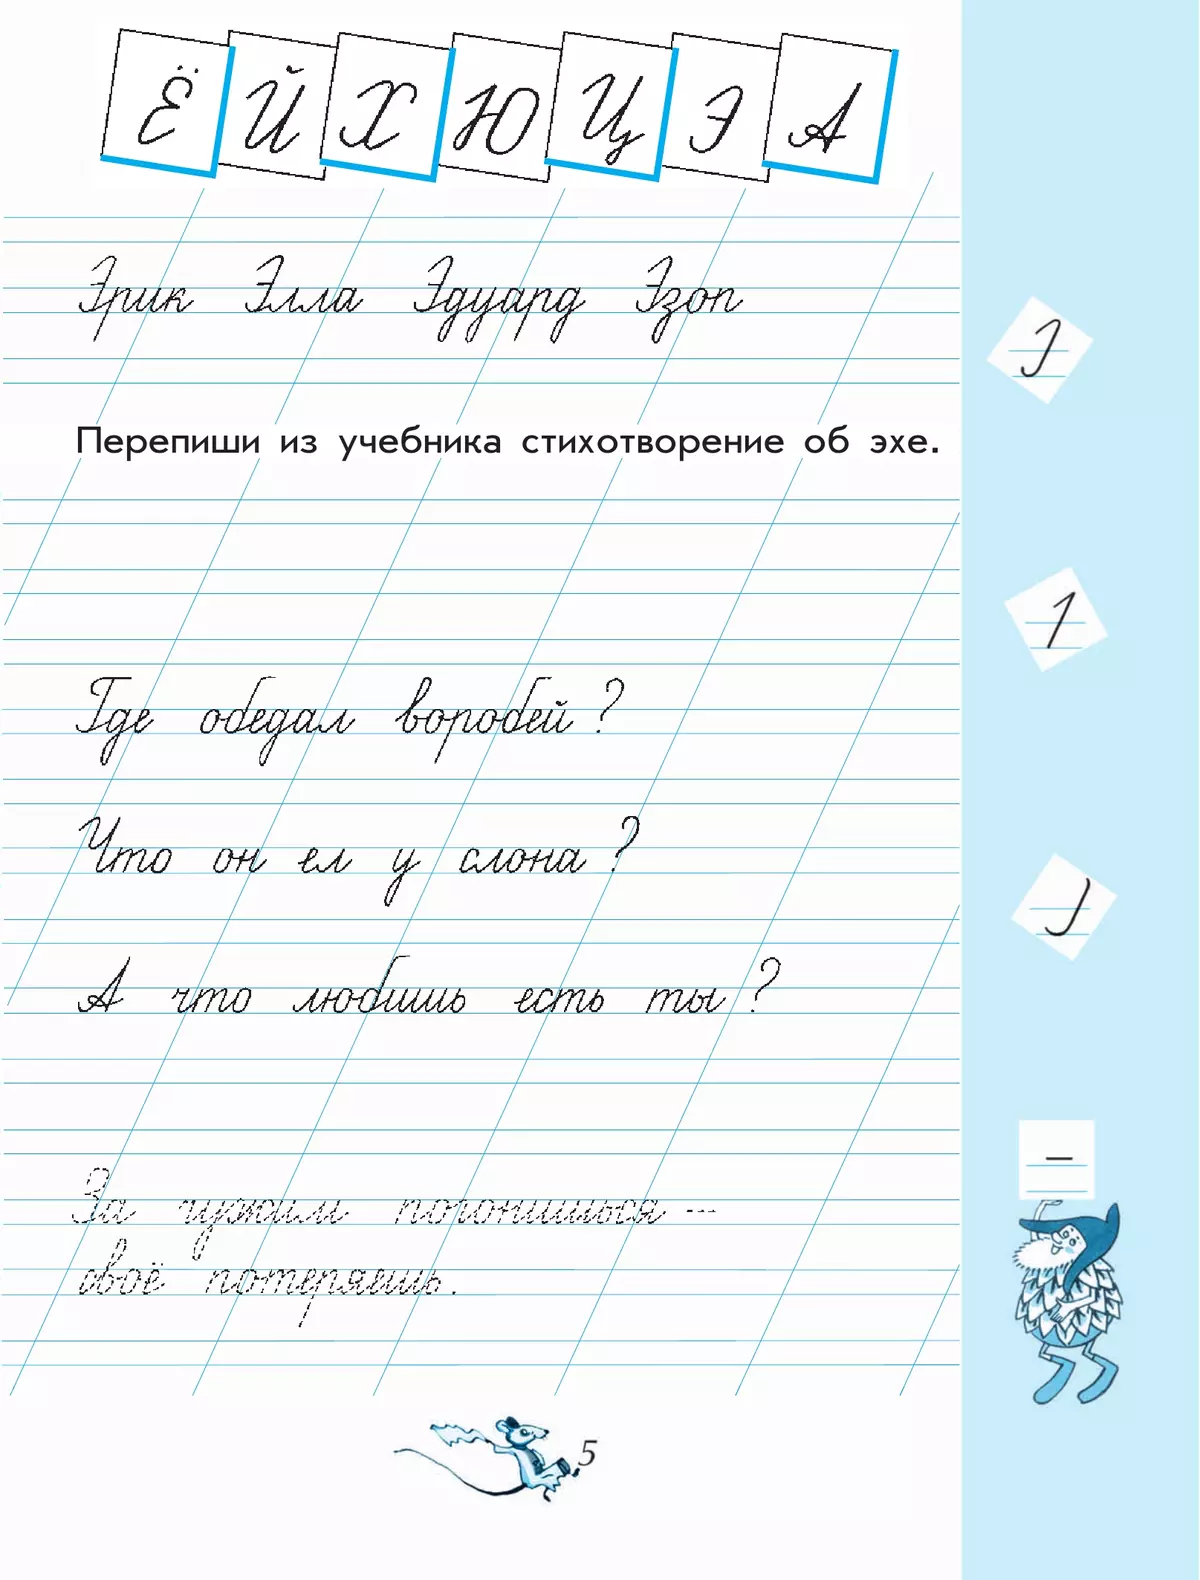 Ё Й Х Ю Ц Э А
Эрик Элла Эдуард Эзоп
Перепиши из учебника стихотворение об эхе.
Где обедал воробей?
Что он ел у слона?
А что любишь есть ты?
За чужим погонишься —
своё потеряешь.
5